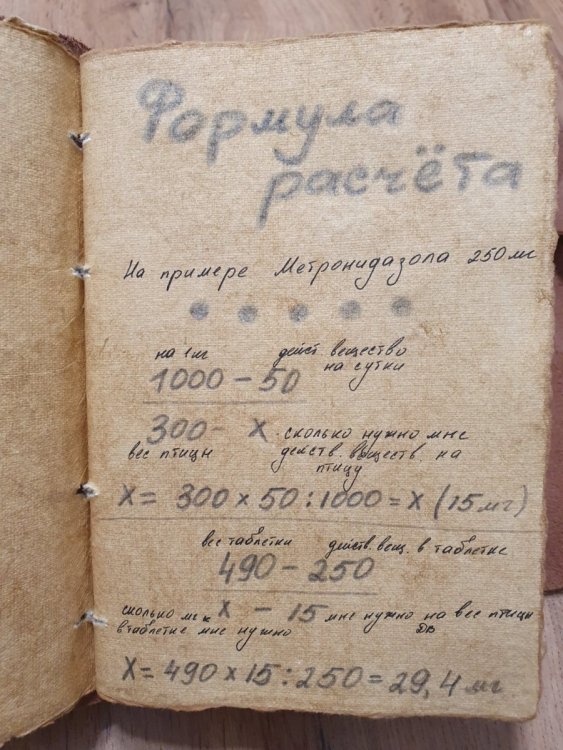 Формула
расчёта
На примере Метронидазола 250мг
на 1кг действ вещество
на сутки
1000 – 50
300 – X сколько нужно мне
вес птицы действ. веществ. на
птицу
X = 300 × 50 : 1000 = X (15 мг)
вес таблетки действ. вещ. в таблетке
490 – 250
сколько мг X – 15 мне нужно на вес птицы
в таблетке мне нужно ДВ
X = 490 × 15 : 250 = 29,4 мг